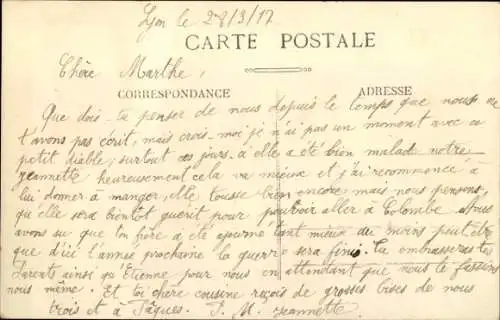 Lyon le 28/3/17
CARTE POSTALE
Chère Marthe,
CORRESPONDANCE
ADRESSE
Que dois-tu penser de nous depuis le temps que nous ne
t'avons pas écrit, mais crois-moi je n'ai pas un moment avec ce
petit diable, surtout ces jours-ci elle a été bien malade notre
jeannette heureusement cela va mieux et j'ai recommencé à
lui donner à manger, elle tousse bien encore mais nous pensons,
qu'elle sera bientôt guerit pour pouvoir aller à Colombe. Nous
avons su que ton frère a été ajourné tant mieux du moins peut être
que d'ici l'année prochaine la guerre sera finie. Tu embrasseras tes
Parents ainsi qu'Etienne pour nous en attendant que nous le fassions
nous même. Et toi chère cousine reçois de grosses bises de nous
trois et à Pâques. P. M. Jeannette.